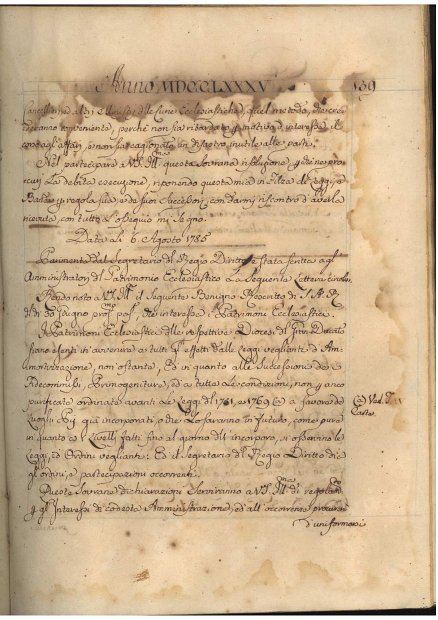 Anno MDCCLXXXV 139
Cancellieri, ed altri Ministri delle Curie Ecclesiastiche, quel metodo, che crederanno
conveniente, perchè non sia ritardato p. motivo d'interesse il
corso agl'affari, e non sia cagionato un disastro inutile alle parti.
Nel partecipare a VS. Ill. questa Sovrana risoluzione, p. che ne procuri
la debita esecuzione, riponendo questa mia in Filza di Leggi, e
Bandi p. regola sua, e de suoi Successori, con darmi riscontro d'averla
ricevuta, con tutto l'ossequio mi segno.
Data li 6. Agosto 1785
Parimente dal Segretario del Regio Diritto è stata scritta agl'
Amministratori di Patrimonio Ecclesiastico la seguente Lettera circolare.
Rendo noto a VS. Ill. il seguente Benigno Rescritto di S. A. R.
di 30 Giugno pross. pass. che interessa i Patrimoni Ecclesiastici.
I Patrimoni Ecclesiastici delle respettive Diocesi del Gran Ducato
siano esenti in avvenire a tutti gl'effetti dalle Leggi veglianti d'Ammortizazione,
non ostante, ed in quanto alle Successioni de
Fidecommissi, Primogeniture, ed a tutte le condizioni, non p. anco
purificate ordinate avanti le Leggi del 1751. e 1769 (a) a favore de
Luoghi Pij già incorporati, o che lo saranno in futuro, come pure
in quanto a i Livelli fatti fino al giorno dell'incorporo, si osservino le
Leggi, ed Ordini veglianti. Ed il Segretario del Regio Diritto dia
gl'ordini, e partecipazioni occorrenti.
Queste Sovrane dichiarazioni serviranno a VS. Ill. di regola
p. gl'Interessi di codesta Amministrazione, ed all'occorrenze procurerà
d'uniformarsi
(a) Ved. T. V